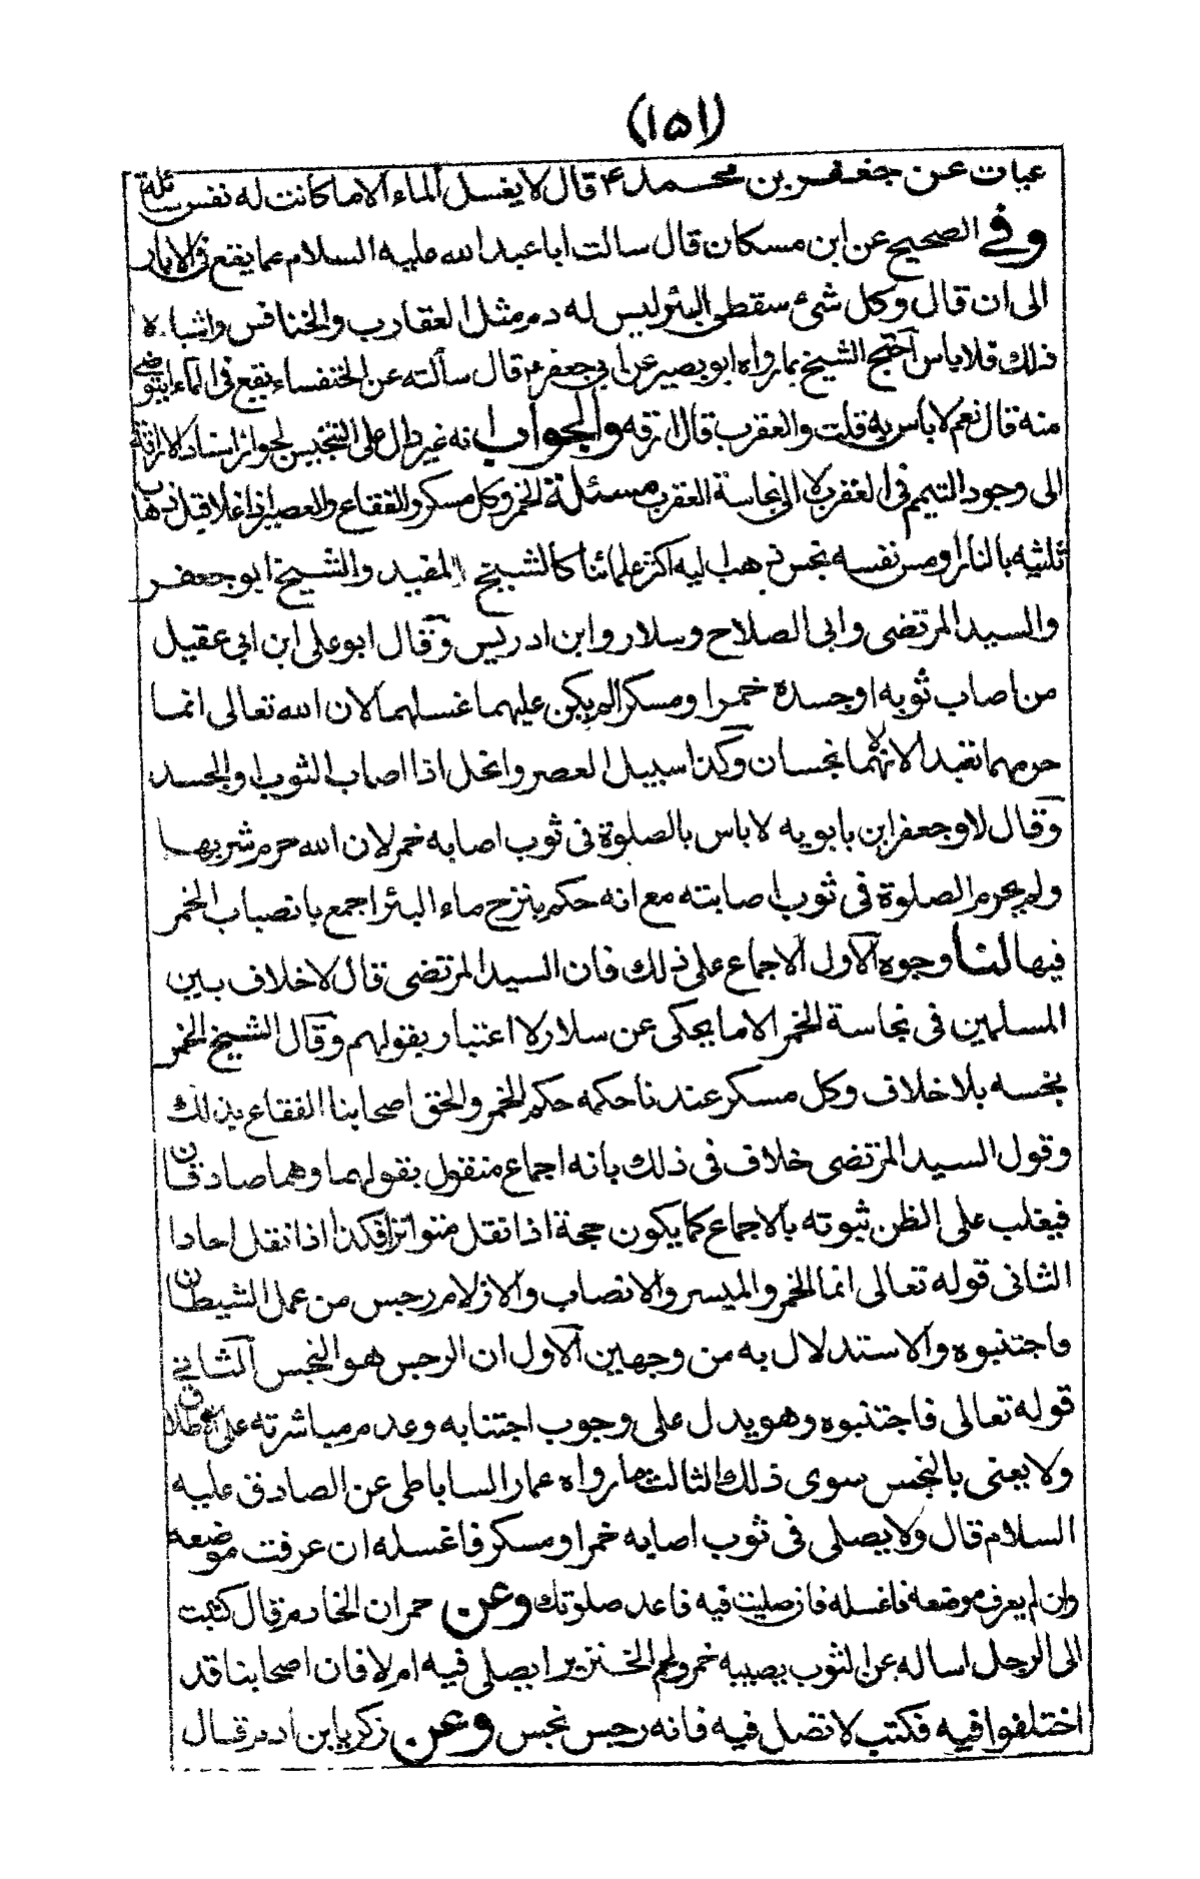 (۱۵۱)
عباث عن جعفر بن محمد ع قال لا يغسل الماء الا ما كانت له نفس سائلة
وفي الصحيح عن ابن مسكان قال سالت ابا عبد الله عليه السلام عما يقع في الابار
الى ان قال وكل شئ سقط في البئر ليس له دم مثل العقارب والخنافس واشباه
ذلك فلا باس احتج الشيخ بما رواه ابو بصير عن ابي جعفر ع قال سألته عن الخنفساء يقع في الماء ايتوضى
منه قال نعم لا باس به قلت والعقرب قال ارقه والجواب انه غير دال على التنجيس لجواز استناد الاراقة
الى وجود السم في العقرب لا الى نجاسة العقرب مسئلة الخمر وكل مسكر والفقاع والعصير اذا غلا قبل ذهاب
ثلثيه بالنار او من نفسه نجس ذهب اليه اكثر علمائنا كالشيخ المفيد والشيخ ابو جعفر
والسيد المرتضى وابى الصلاح وسلار وابن ادريس وقال ابو على ابن ابي عقيل
من اصاب ثوبه او جسده خمرا ومسكر لم يكن عليهما غسلهما لان الله تعالى انما
حرمهما تعبدا لا لانهما نجسان وكذا سبيل العصر والخل اذا اصاب الثوب والجسد
وقال لاو جعفر ابن بابويه لا باس بالصلوة في ثوب اصابه خمر لان الله حرم شربها
ولم يحرم الصلوة في ثوب اصابته مع انه حكم بنزح ماء البئر اجمع بانصباب الخمر
فيها لنا وجوه الاول الاجماع على ذلك فان السيد المرتضى قال لا خلاف بين
المسلمين في نجاسة الخمر الا ما يحكى عن سلار لا اعتبار بقولهم وقال الشيخ الخمر
نجسه بلا خلاف وكل مسكر عندنا حكمه حكم الخمر والحق اصحابنا الفقاع بذلك
وقول السيد المرتضى خلاف في ذلك بانه اجماع منقول بقولهما وهما صادقان
فيغلب على الظن ثبوته بالاجماع كما يكون حجة اذا نقل متواترا فكذا اذا نقل احادا
الثاني قوله تعالى انما الخمر والميسر والانصاب والازلام رجس من عمل الشيطان
فاجتنبوه والاستدلال به من وجهين الاول ان الرجس هو النجس الثاني
قوله تعالى فاجتنبوه وهو يدل على وجوب اجتنابه وعدم مباشرته على الاطلاق
ولا يعنى بالنجس سوى ذلك الثالث ما رواه عمار الساباطي عن الصادق عليه
السلام قال ولا يصلى في ثوب اصابه خمر او مسكر فاغسله ان عرفت موضعه
وان لم يعرف موضعه فاغسله فان صليت فيه فاعد صلوتك وعن حمران الخادم قال كتبت
الى الرجل اساله عن الثوب يصيبه خمر ولحم الخنزير ايصلى فيه ام لا فان اصحابنا قد
اختلفوا فيه فكتب لا تصل فيه فانه رجس نجس وعن زكريا بن ادم قال